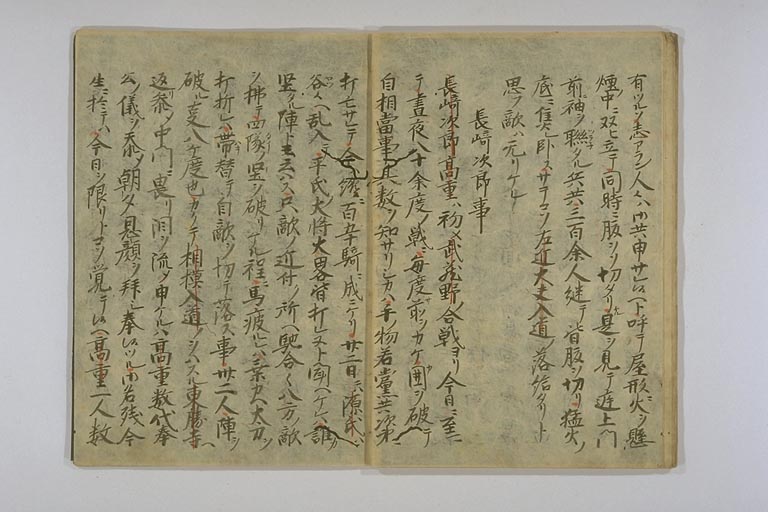 有ツル志アラン人々ハ御共申サレヨト呼テ屋形火ヲ懸
煙ノ中ニ双ヒ立テ同時ニ腹ヲソ切タリ是ヲ見テ庭上門
前袖ヲ聯タル兵共三百余人継テ皆腹ヲ切リ猛火ノ
底ニ焦臥サテコソ左近大夫入道ノ落給タリト
思フ敵ハ无リケレ
長崎次郎事
長崎次郎高重ハ初メ武蔵野ノ合戦ヨリ今日ニ至
テ昼夜八十余度ノ戦ニ毎度前ヲカケ囲ヲ破テ
自相當事其数ヲ知サリシカハ手物若黨共次第ニ
打亡サレテ今纔ニ百五十騎ニ成ニケリ廿二日ニ源氏ハ
谷々ヘ乱入テ平氏ノ大将大畧皆打レヌト聞ヘケレハ誰カ
堅タル陣トモ云ハス只敵ノ近付ノ所ヘ馳合々々八方ノ敵
ヲ拂テ四隊ノ堅ヲ破リケル程ニ馬疲レハ乗カヘ太刀
打折レハ帯替テ自敵ヲ切テ落ス事卅二人陣ヲ
破ル事八ケ度也カクテ相模入道ノヲハスル東勝寺ヘ
返参テ中門ニ畏リ泪ヲ流シ申ケルハ高重数代奉
公ノ儀ヲ忝シ朝夕恩顔ヲ拝シ奉レツル御名残今
生ニ於テハ今日ヲ限リトコソ覚テ候ヘ高重一人数